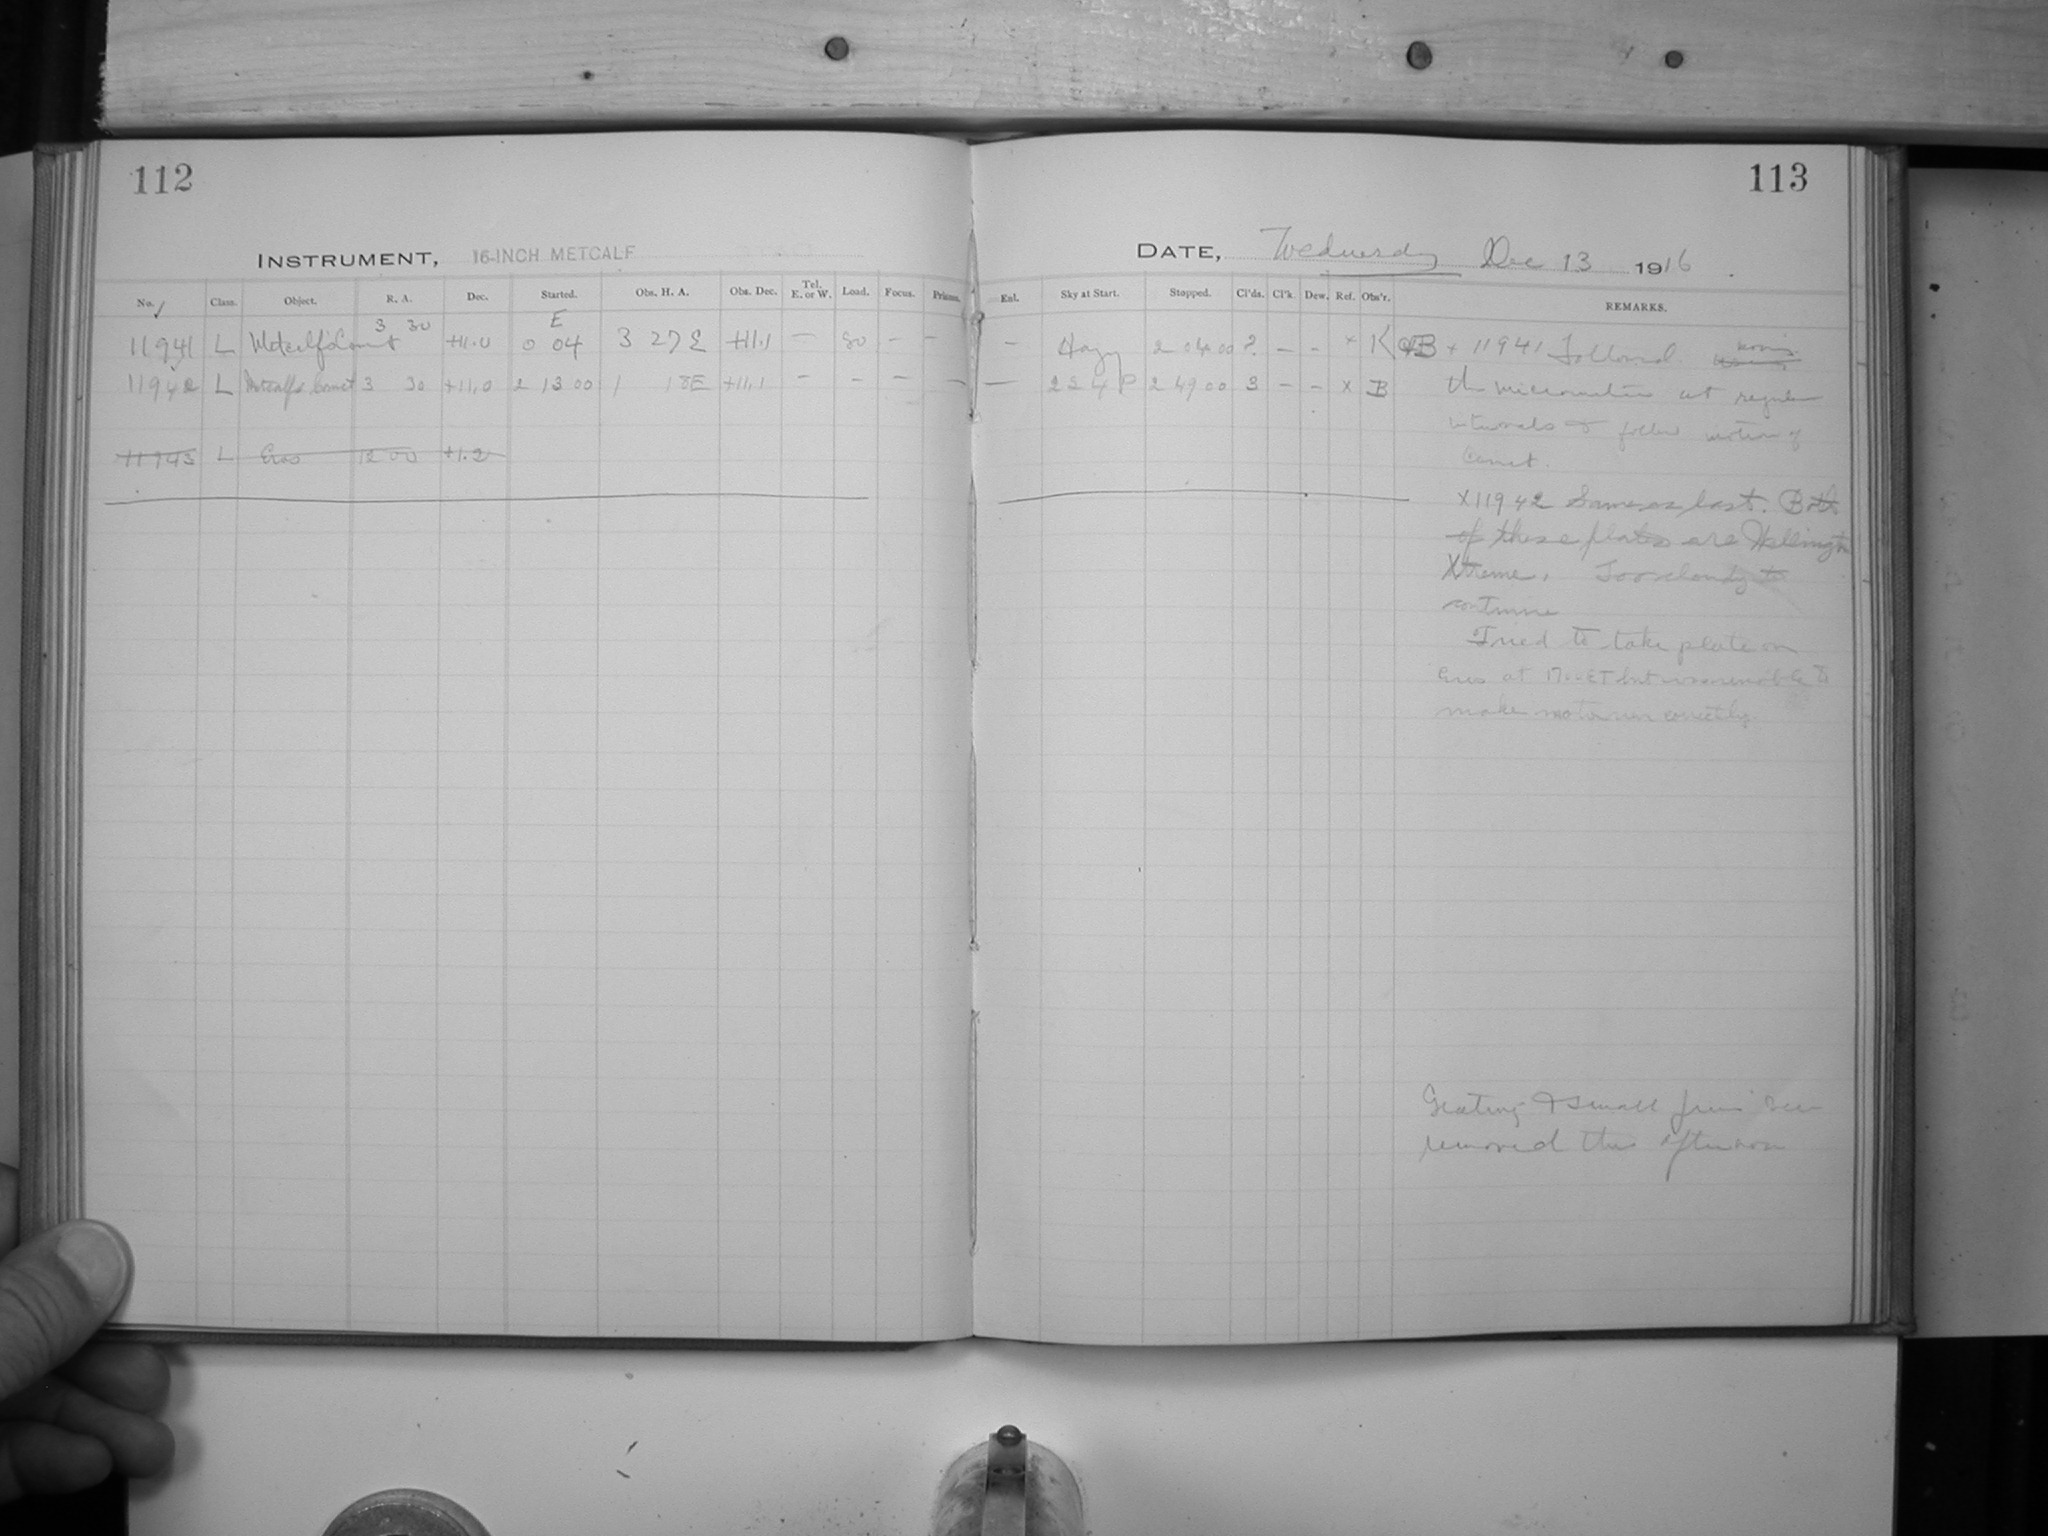 112
113
INSTRUMENT, 16-INCH METCALF
DATE, Wednesday Dec 13 1916
No. Class. Object. R. A. Dec. Started. Obs. H. A. Obs. Dec. Tel. E. or W. Load. Focus. Prisms. Enl. Sky at Start. Stopped. Cl'ds. Cl'k. Dew. Ref. Obs'r. REMARKS.
11941 L Metcalf's Comet 3 30 +11.0 E 0 04 3 27 E +11.1 — — — — Hazy 2 04 00 ? — — x K & B
11942 L Metcalf's Comet 3 30 +11.0 2 13 00 1 18 E +11.1 — — — — — 2 49 00 3 — — x B
11943 L Eros 12 00 +1.2
x 11941 Followed
the micrometer at regular
intervals to follow motion of
Comet.
X 11942 Same as last. Both
of these plates are Wellington
Xtreme. Too cloudy to
continue
Tried to take plate on
Eros at but was unable to
make motor run correctly.
Grating & small
removed this afternoon